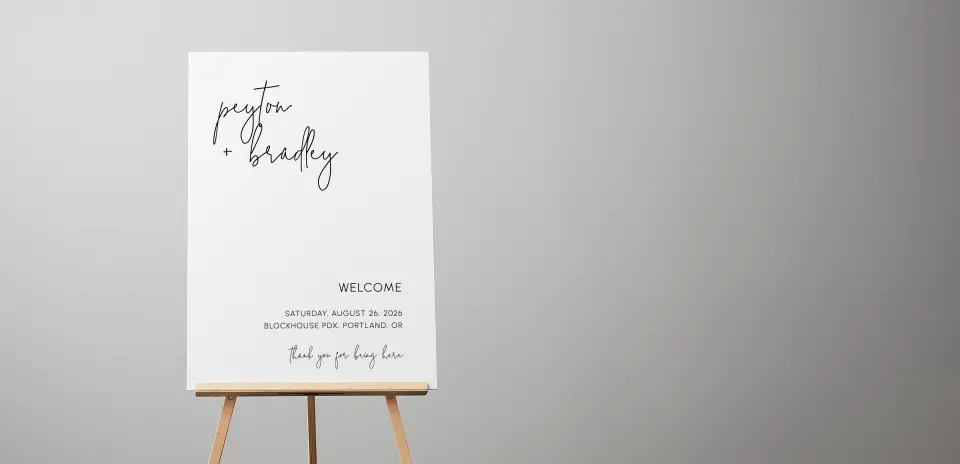 peyton
+ bradley
WELCOME
SATURDAY, AUGUST 26, 2026
BLOCKHOUSE PDX, PORTLAND, OR
thank you for being here